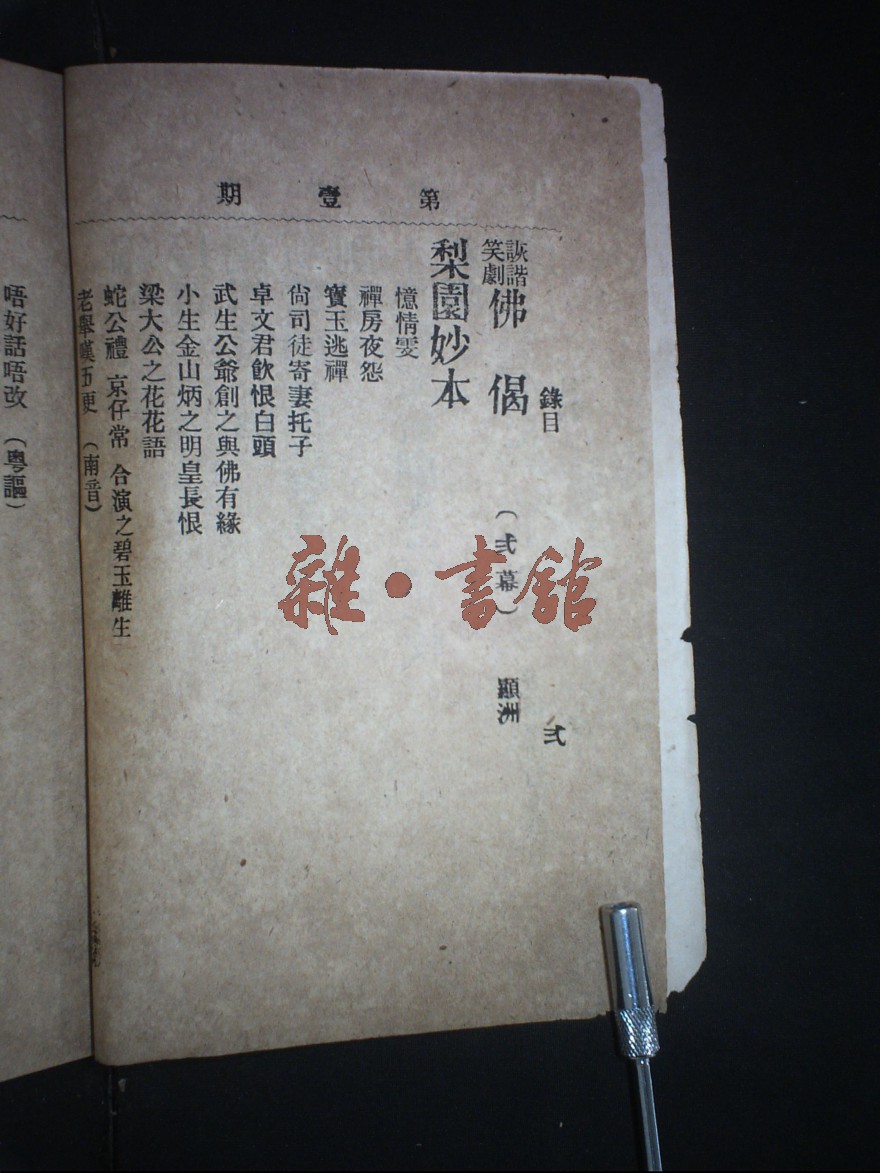 第壹期
錄目 弍
詼諧笑劇 佛偈 (弍幕) 顯洲
梨園妙本
憶情雯
禪房夜怨
寶玉逃禪
尙司徒寄妻托子
卓文君飮恨白頭
武生公爺創之與佛有緣
小生金山炳之明皇長恨
梁大公之花花語
蛇公禮 京仔常 合演之碧玉離生
老舉嘆五更 (南音)
唔好話唔改 (粵謳)
雜·書館